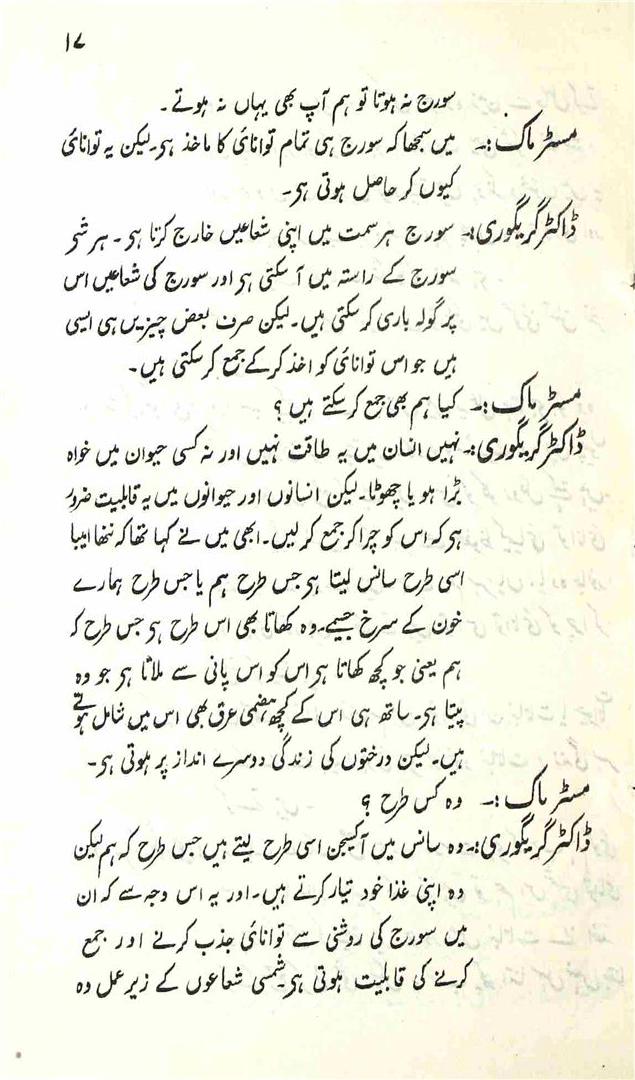 ۱۷
سورج نہ ہوتا تو ہم آپ بھی یہاں نہ ہوتے۔
مسٹر ماک:۔ میں سمجھا کہ سورج ہی تمام توانائی کا ماخذ ہی۔ لیکن یہ توانائی
کیوں کر حاصل ہوتی ہی۔
ڈاکٹر گریگوری:۔ سورج ہر سمت میں اپنی شعاعیں خارج کرتا ہی۔ ہر شۓ
سورج کے راستہ میں آ سکتی ہی اور سورج کی شعاعیں اس
پر گولہ باری کر سکتی ہیں۔ لیکن صرف بعض چیزیں ہی ایسی
ہیں جو اس توانائی کو اخذ کر کے جمع کر سکتی ہیں۔
مسٹر ماک:۔ کیا ہم بھی جمع کر سکتے ہیں ؟
ڈاکٹر گریگوری:۔ نہیں انسان میں یہ طاقت نہیں اور نہ کسی حیوان میں خواہ
بڑا ہو یا چھوٹا۔ لیکن انسانوں اور حیوانوں میں یہ قابلیت ضرور
ہی کہ اس کو چرا کر جمع کر لیں۔ ابھی میں نے کہا تھا کہ ننھا امیبا
اسی طرح سانس لیتا ہی جس طرح ہم یا جس طرح ہمارے
خون کے سرخ جسیمے۔ وہ کھاتا بھی اس طرح ہی جس طرح کہ
ہم یعنی جو کچھ کھاتا ہی اس کو اس پانی سے ملاتا ہی جو وہ
پیتا ہی۔ ساتھ ہی اس کے کچھ ہضمی عرق بھی اس میں شامل ہوتے
ہیں۔ لیکن درختوں کی زندگی دوسرے انداز پر ہوتی ہی۔
مسٹر ماک:۔ وہ کس طرح ؟
ڈاکٹر گریگوری:۔ وہ سانس میں آکسیجن اسی طرح لیتے ہیں جس طرح کہ ہم لیکن
وہ اپنی غذا خود تیار کرتے ہیں۔ اور یہ اس وجہ سے کہ ان
میں سورج کی روشنی سے توانائی جذب کرنے اور جمع
کرنے کی قابلیت ہوتی ہی۔ شمسی شعاعوں کے زیر عمل وہ